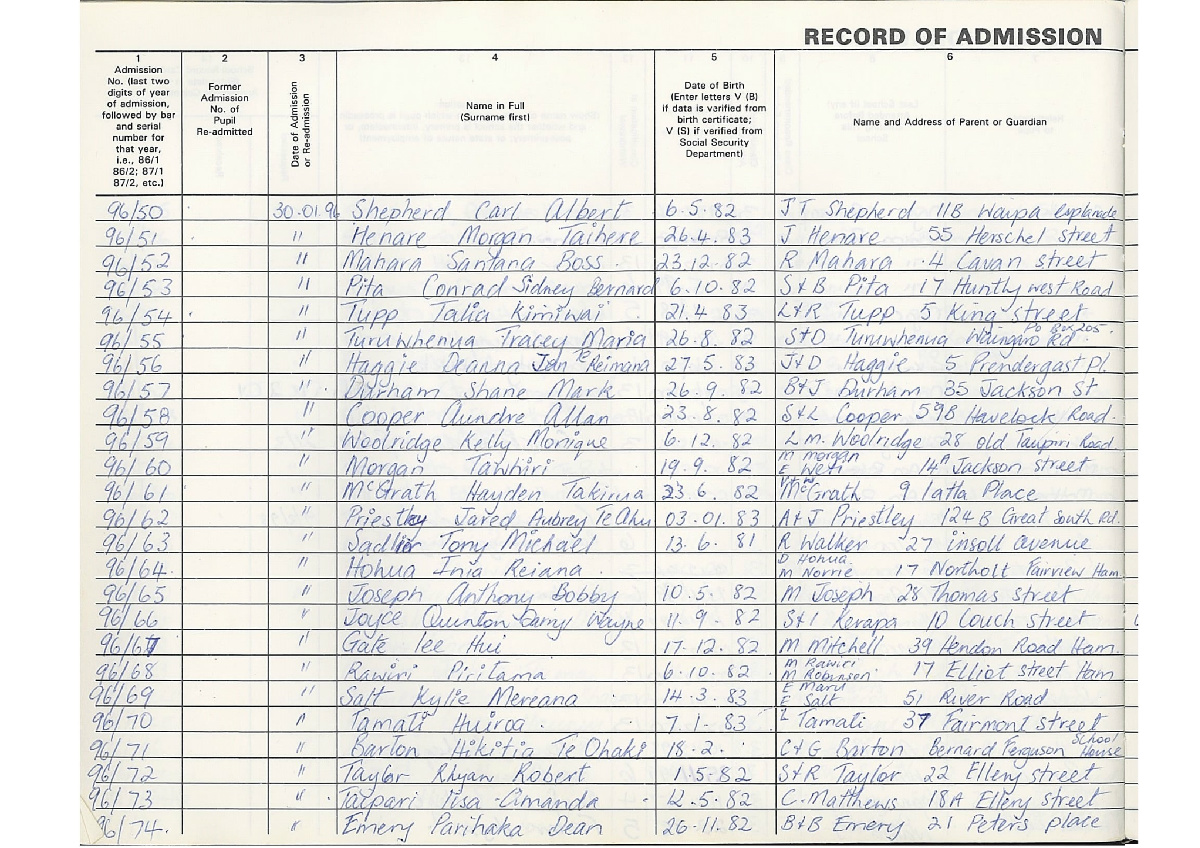 RECORD OF ADMISSION
1 2 3 4 5 6
Admission No. (last two digits of year of admission, followed by bar and serial number for that year, i.e., 86/1 86/2; 87/1 87/2, etc.)
Former Admission No. of Pupil Re-admitted
Date of Admission or Re-admission
Name in Full (Surname first)
Date of Birth (Enter letters V (B) if data is verified from birth certificate; V (S) if verified from Social Security Department)
Name and Address of Parent or Guardian
96/50 30.01.96 Shepherd Carl Albert 6.5.82 JT Shepherd 11B Waipa esplanade
96/51 " Henare Morgan Taihere 26.4.83 J Henare 55 Herschel street
96/52 " Mahara Santana Boss. 23.12.82 R Mahara 4 Cavan street
96/53 " Pita Conrad Sidney Bernard 6.10.82 S&B Pita 17 Huntly west Road
96/54 " Tupp Talia Kimiwai 21.4 83 L&R Tupp 5 King street
96/55 " Turuwhenua Tracey Maria 26.8.82 S&D Turuwhenua Waingaro Rd. PO Box 205.
96/56 " Haggie Deanna Jan Te Reimana 27.5.83 J&D Haggie 5 Prendergast Pl.
96/57 " Durham Shane Mark 26.9.82 B&J Durham 35 Jackson St
96/58 " Cooper Aundre Allan 23.8.82 S&L Cooper 59B Havelock Road.
96/59 " Woolridge Kelly Monique 6.12.82 L.M. Woolridge 28 old Taupiri Road.
96/60 " Morgan Tawhiri 19.9.82 M Morgan E Weti 14A Jackson street
96/61 " McGrath Hayden Takirua 23.6.82 McGrath 9 Place
96/62 " Priestley Jared Aubrey Te Ahu 03.01.83 A&J Priestley 124B Great South Rd.
96/63 " Sadlier Tony Michael 13.6.81 R Walker 27 insoll avenue
96/64. " Hohua Inia Reiana 
D Hohua M Norrie 17 Northolt Fairview Ham.
96/65 " Joseph Anthony Bobby 10.5.82 M Joseph 28 Thomas street
96/66 " Joyce Quinton Darryl Wayne 11.9.82 S&I Kerapa 10 Couch street
96/67 " Gate lee Hui 17.12.82 M Mitchell 39 Hendon Road Ham.
96/68 " Rawiri Piritama 6.10.82 M Rawiri M Robinson 17 Elliot street Ham
96/69 " Salt Kylie Mereana 14.3.83 E Maru E Salt 51 River Road
96/70 " Tamati Huiroa 7.1.83 Tamati 37 Fairmont street
96/71 " Barton Hikitia Te Ohaki 18.2. C&G Barton Bernard Ferguson School House
96/72 " Taylor Rhyan Robert 1.5.82 S&R Taylor 22 Ellery street
96/73 " Taipari lisa Amanda 12.5.82 C. Matthews 18A Ellery street
96/74. " Emery Parihaka Dean 26.11.82 B&B Emery 21 Peters place